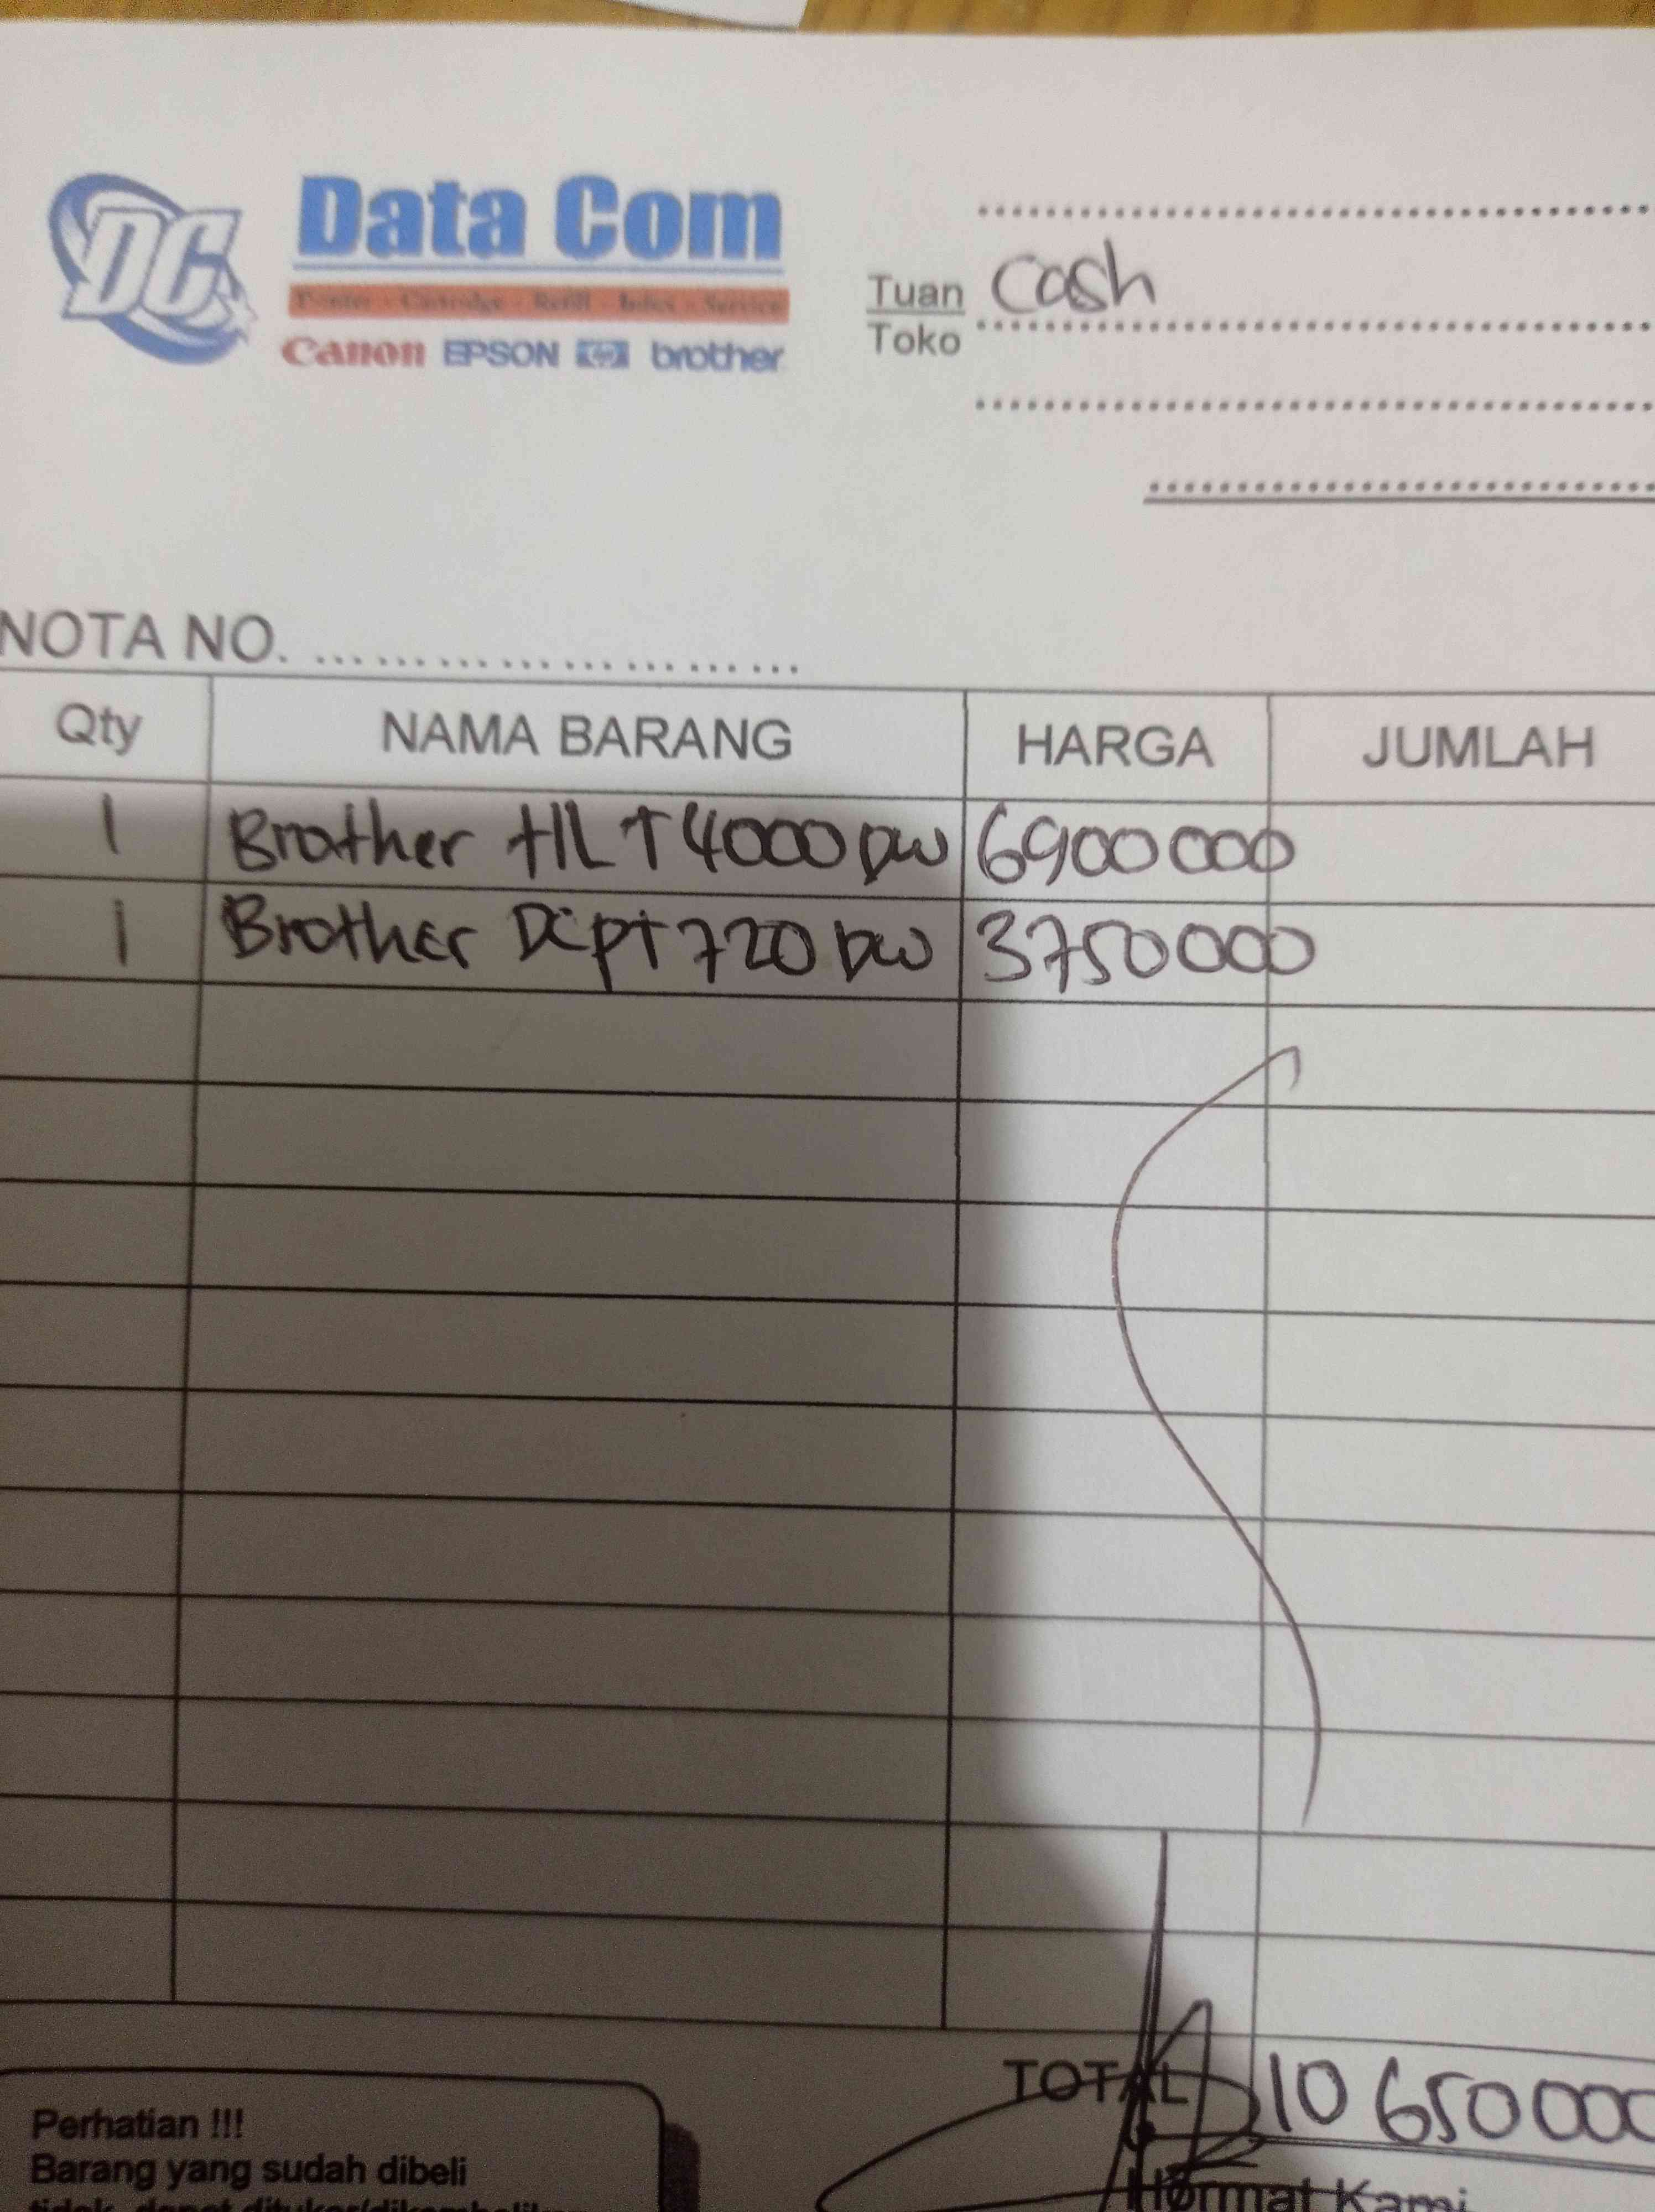 DC
Data Com
Printer - Cartridge - Refill - Infus - Service
Canon EPSON hp brother
Tuan Cash
Toko
NOTA NO.
Qty NAMA BARANG HARGA JUMLAH
1 Brother HL T4000 DW 6900 000
1 Brother Dcp T 720 DW 3750 000
TOTAL 10 650 000
Perhatian !!!
Barang yang sudah dibeli
Hormat Kami